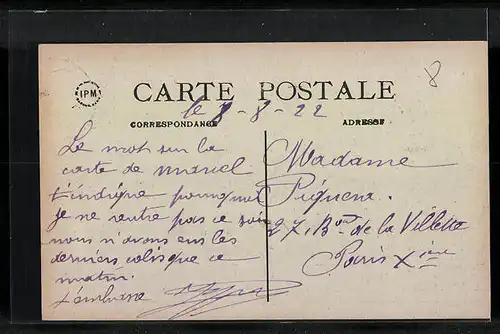 IPM
CARTE POSTALE
8
le 8-8-22
CORRESPONDANCE
ADRESSE
Le mot sur la
carte de Marcel
t'indique pourquoi
je ne rentre pas ce soir
nous n'avons eus les
derniers colis que ce
matin.
t'embrasse
Madame
27, Bard de la Villette
Paris X ième